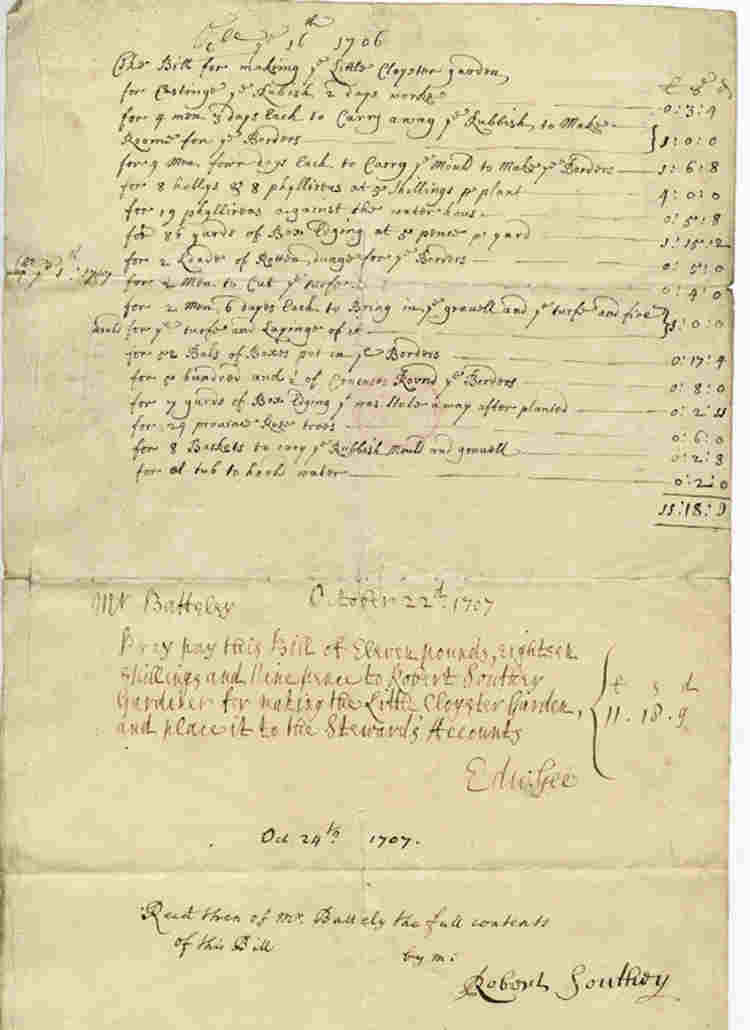 ye 16th 1706
The Bill for making ye Little Cloyster garden
£ s d
for Castinge ye Rubish 2 days worke 0:3:4
for 4 men 3 days Each to Carry away ye Rubbish, to Make
Roome for ye Borders 1:0:0
for 4 Men fowr days Each to Carry ye Mould to Make ye Borders 1:6:8
for 8 hollys & 8 phyllireas at 5 shillings pr plant 4:0:0
for 19 phyllireas against the water hous 0:5:8
for 86 yards of Box Edging at 5 pence pr yard 1:15:
for 2 Loades of Rotten dunge for ye Borders 0:5:0
for 2 Men to Cut ye turfe 0:4:0
1707
for 2 Men 6 dayes Each to Bring in ye gravell and ye turfe and fine
mould for ye turfe and Layinge of it :0:0
for 52 Bals of Boxes put in ye Borders 0:17:4
for hundred and ½ of Crocuses Round ye Borders 0:8:0
for 7 yards of Box Edging yt was stole away after planted 0:2:11
for 24 provinc Rose trees 0:6:0
for 8 Baskets to cary ye Rubbish Mould and gravell 0:2:3
for a tub to hold water 0:2:0
11:18:9
Mr Batteley October 22th. 1707
Pray pay this Bill of Eleven pounds, eighteen
shillings and Nine pence to Robert Southey
Gardiner for making the Little Cloyster Garden,
and place it to the Stewards Accounts
£ s d
11. 18. 9
Edw: Gee
Oct 24th 1707.
Recd then of Mr. Battely the full contents
of this Bill
by me
Robert Southey